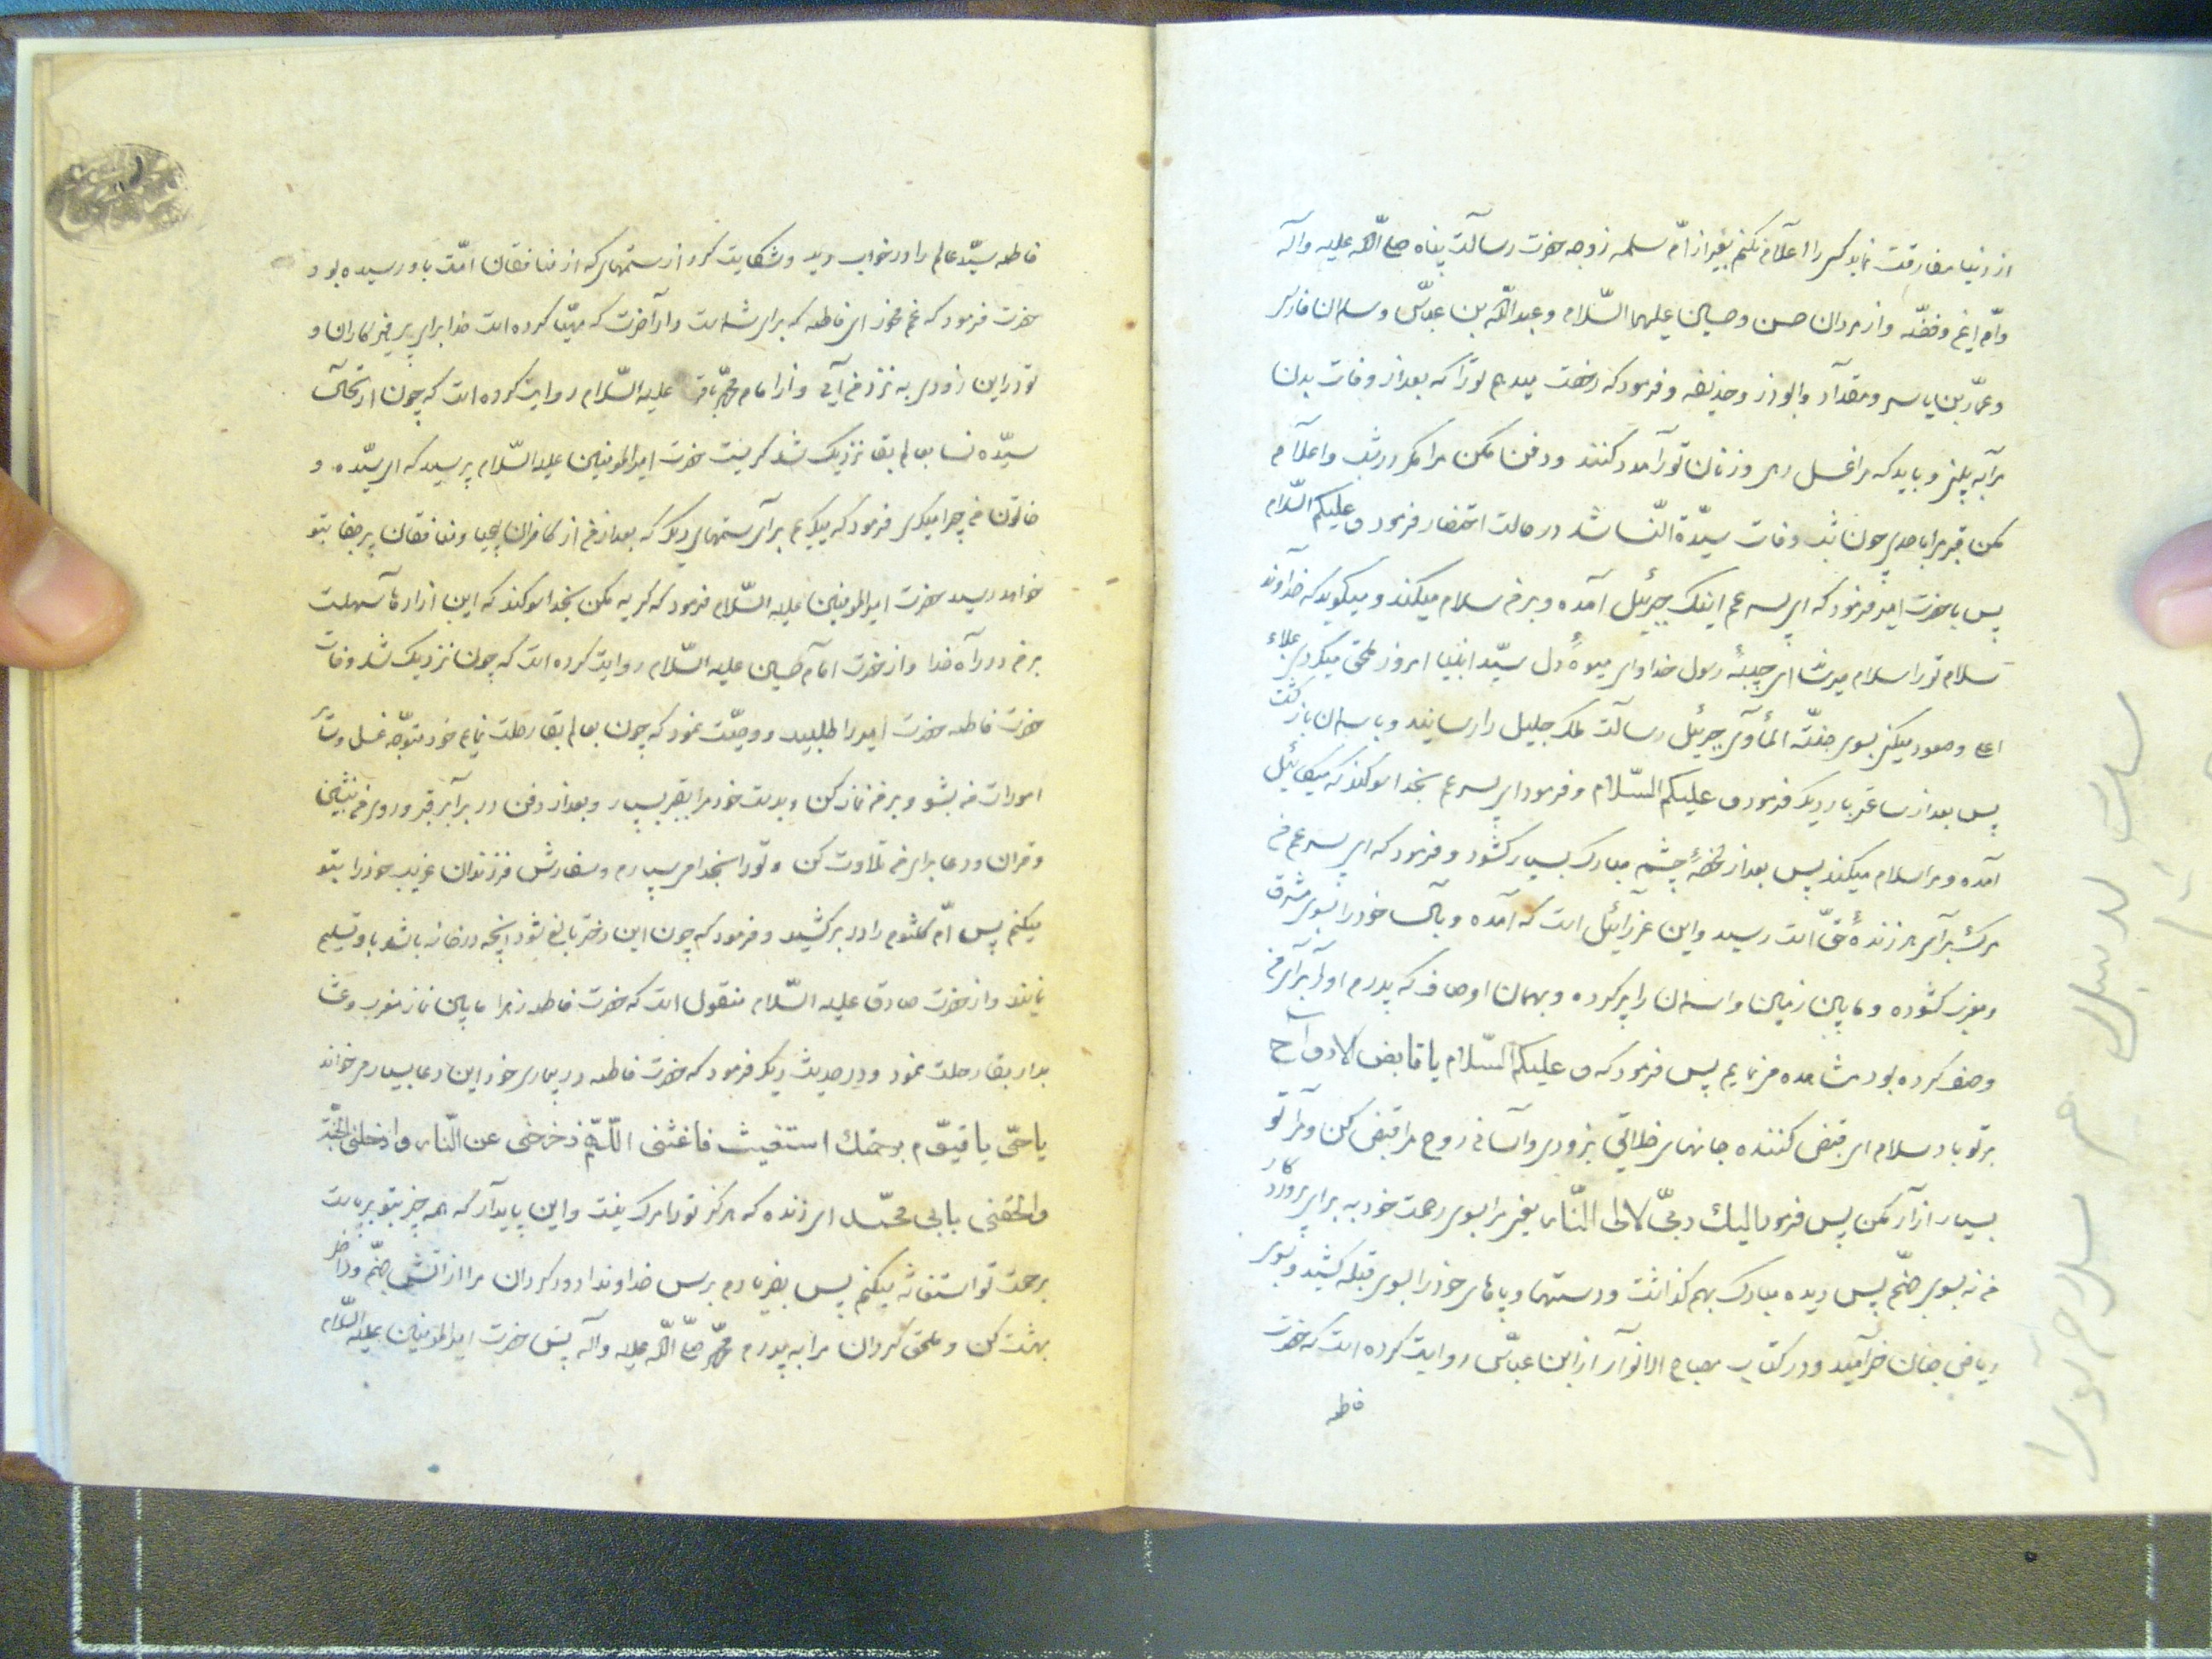 از دنیا مفارقت نماید کسی را اعلام نکنم بغیر از ام سلمه زوجه حضرت رسالت پناه صلی الله علیه وآله
وام ایمن و فضّه و از مردان حسن و حسین علیهما السّلام و عبدالله بن عبّاس و سلمان فارسی
و عمّار بن یاسر و مقداد و ابوذر و حذیفه و فرمود که رخصت میدهم تو را که بعد از وفات بدن
مرا به بینی و باید که مرا غسل دهی و زنان تو را مدد کنند و دفن مکن مرا مگر در شب و اعلام
مکن قبر مرا باحدی چون شب وفات سیّدة النّسا شد در حالت احتضار فرمود و علیکم السّلام
پس با حضرت امیر فرمود که ای پسر عم اینک جبرئیل آمده و بر من سلام میکند و میگوید که خداوند
سلام تو را سلام میرساند ای حبیبهٔ رسول خدا و ای میوهٔ دل سیّد انبیا امروز ملحق میگردی بملاء
اعلی و صعود میکنی بسوی جنّة المأوی جبرئیل رسالت ملک جلیل را رسانید و باسمان باز گشت
پس بعد از ساعتی بار دیگر فرمود و علیکم السّلام و فرمود ای پسر عم بخدا سوگند که میکائیل
آمده و مرا سلام میکند پس بعد از لحظهٔ چشم مبارک بسیار گشود و فرمود که ای پسر عم من
مرگ برای هر زندهٔ حقّ است رسید و این عزرائیل است که آمده و بال خود را بسوی مشرق
و مغرب گشوده و مابین زمین و اسمان را پر کرده و بهمان اوصاف که پدرم او را برای من
وصف کرده بود مشاهده می نمایم پس فرمود که و علیکم السّلام یا قابض الارواح
بر تو باد سلام ای قبض کننده جانهای خلائق بزودی و آسانی روح مرا قبض کن و مرا تو
بسیار ازار مکن پس فرمود الیك ربّی لا الی النّار یعنی مرا بسوی رحمت خود به بر ای پروردگار
من نه بسوی جهنّم پس دیده مبارک بهم گذاشت و دستها و پاهای خود را بسوی قبله کشید و بسوی
ریاض جنان خرامید و در کتاب مصباح الانوار از ابن عبّاس روایت کرده است که حضرت
فاطمه
فاطمه سیّد عالم را در خواب دید و شکایت کرد از ستمهای که از منافقان امّت باو رسیده بود
حضرت فرمود که غم مخور ای فاطمه که برای شماست دار آخرت که مهیّا کرده است خدا برای پرهیزکاران و
تو در این زودی به نزد من آیی و از امام محمّد باقر علیه السّلام روایت کرده است که چون ارتحال
سیّده نسا بعالم بقا نزدیک شد گریست حضرت امیرالمومنین علیه السّلام پرسید که ای سیّده و
خاتون من چرا میگریی فرمود که میگریم برای ستمهای دیگر که بعد از من از کافران بیحیا و منافقان پر جفا بتو
خواهد رسید حضرت امیرالمومنین علیه السّلام فرمود که گریه مکن بخدا سوگند که این ازارها سهلست
بر من در راه خدا و از حضرت امام حسین علیه السّلام روایت کرده است که چون نزدیک شد وفات
حضرت فاطمه حضرت امیر را طلبید و وصیّت نمود که چون بعالم بقا رحلت نمایم خود متوجّه غسل و سایر
امورات من بشو و بر من نماز کن و بدست خود مرا بقبر بسپار و بعد از دفن در برابر قبر و روی من بنشین
و قران و دعا برای من تلاوت کن و تو را بخدا می سپارم و سفارش فرزندان غریب خود را بتو
میکنم پس امّ کلثوم را در بر کشید و فرمود که چون این دختر بالغ شود آنچه در خانه باشد باو تسلیم
نمایند و از حضرت صادق علیه السّلام منقول است که حضرت فاطمه زهرا مابین نماز مغرب و عشا
بدار بقا رحلت نمود و در حدیث دیگر فرمود که حضرت فاطمه در بیماری خود این دعا بسیار می خواند
یا حیّ یا قیّوم برحمتك استغیث فاغثنی اللّهم زحزحنی عن النّار وادخلنی الجنّة
والحقنی بابی محمّد ای زنده که هرگز تو را مرگ نیست و این پایدار که همه چیز بتو برپاست
برحمت تو استغاثه میکنم پس بفریادم برس خداوندا دور گردان مرا از اتش جهنّم و داخل
بهشت کن و ملحق گردان مرا به پدرم محمّد صلّی الله علیه وآله پس حضرت امیرالمومنین علیه السّلام